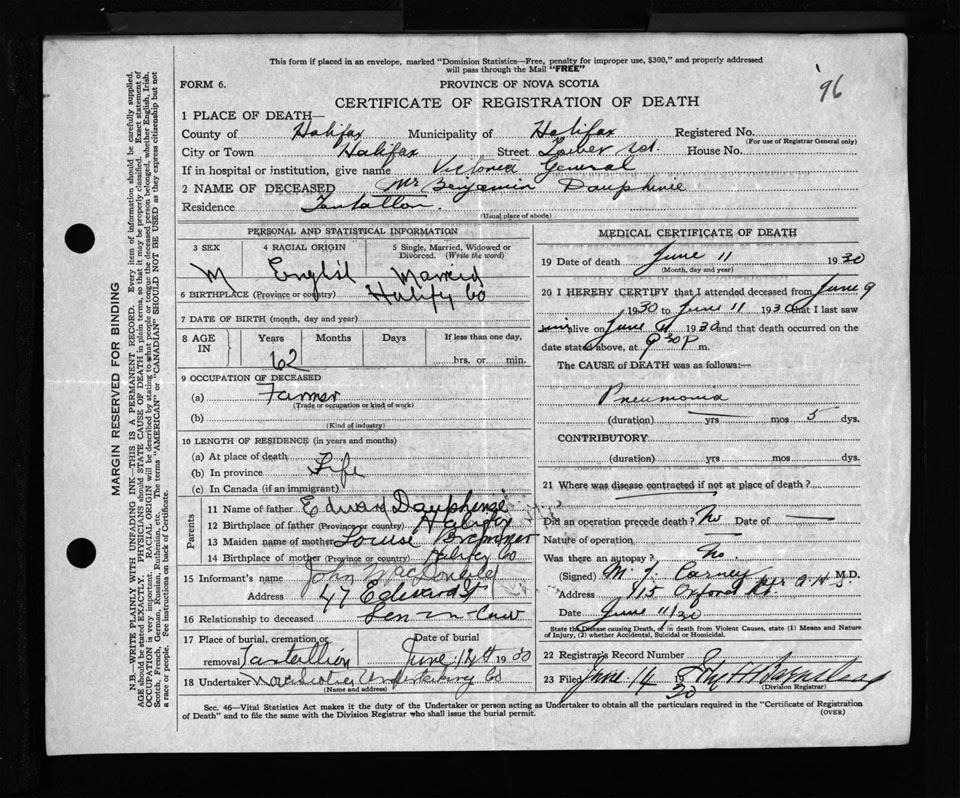 This form if placed in an envelope, marked "Dominion Statistics—Free, penalty for improper use, $300," and properly addressed
will pass through the Mail "FREE"
'96
FORM 6. PROVINCE OF NOVA SCOTIA
CERTIFICATE OF REGISTRATION OF DEATH
1 PLACE OF DEATH—
County of Halifax Municipality of Halifax Registered No.
(For use of Registrar General only)
City or Town Halifax Street Tower Rd. House No.
If in hospital or institution, give name Victoria General
2 NAME OF DECEASED Mr Benjamin Dauphinie
Residence Tantallon.
(Usual place of abode)
PERSONAL AND STATISTICAL INFORMATION
3 SEX 4 RACIAL ORIGIN 5 Single, Married, Widowed or
Divorced. (Write the word)
M English Married
6 BIRTHPLACE (Province or country) Halifx Co
7 DATE OF BIRTH (month, day and year)
8 AGE IN Years Months Days If less than one day,
62 hrs. or min.
9 OCCUPATION OF DECEASED
(a) Farmer
(Trade or occupation or kind of work)
(b)
(Kind of industry)
10 LENGTH OF RESIDENCE (in years and months)
(a) At place of death
(b) In province Life
(c) In Canada (if an immigrant)
Parents
11 Name of father Edward Dauphinie
12 Birthplace of father (Province or country) Halifax
13 Maiden name of mother Louise Bremner
14 Birthplace of mother (Province or country) Halifax Co
15 Informant's name John MacDonald
Address 47 Edward St
16 Relationship to deceased Son-in-Law
17 Place of burial, cremation or Date of burial
removal Tantallion June 12th 1930
18 Undertaker Nova Scotia Undertaking Co
(Name and address)
MEDICAL CERTIFICATE OF DEATH
19 Date of death June 11 1930
(Month, day and year)
20 I HEREBY CERTIFY that I attended deceased from June 9
1930 to June 11 1930 that I last saw
him alive on June 11 1930 and that death occurred on the
date stated above, at 9 30 P m.
The CAUSE of DEATH was as follows:—
Pneumonia
(duration) — yrs — mos 5 dys.
CONTRIBUTORY
(duration) yrs mos dys.
21 Where was disease contracted if not at place of death?
Did an operation precede death? No Date of —
Nature of operation
Was there an autopsy? No.
(Signed) M. J. Carney M.D.
Address 115 Oxford St.
Date June 11/30
State the Disease causing Death, or in death from Violent Causes, state (1) Means and Nature
of Injury, (2) whether Accidental, Suicidal or Homicidal.
22 Registrar's Record Number
23 Filed June 14 1930
(Division Registrar)
Sec. 46—Vital Statistics Act makes it the duty of the Undertaker or person acting as Undertaker to obtain all the particulars required in the "Certificate of Registration
of Death" and to file the same with the Division Registrar who shall issue the burial permit.
(OVER)
MARGIN RESERVED FOR BINDING
N.B.—WRITE PLAINLY WITH UNFADING INK—THIS IS A PERMANENT RECORD. Every item of information should be carefully supplied.
AGE should be stated EXACTLY. PHYSICIANS should STATE CAUSE OF DEATH in plain terms, so that it may be properly classified. Exact statement of
OCCUPATION is very important. RACIAL ORIGIN will be described by stating to what people or tongue the deceased person belonged, whether English, Irish,
Scotch, French, German, Russian, Ruthenian, etc. The terms "AMERICAN" or "CANADIAN" SHOULD NOT BE USED as they express citizenship but not
a race or people. See instructions on back of Certificate.